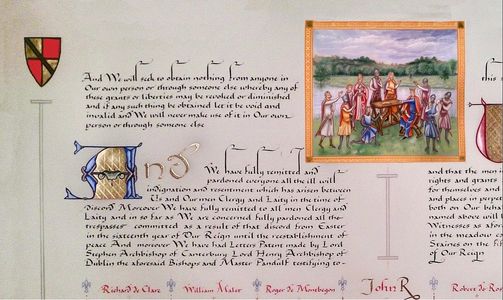 And We will seek to obtain nothing from anyone in
Our own person or through someone else whereby any of
these grants or liberties may be revoked or diminished
and if any such thing be obtained let it be void and
invalid and We will never make use of it in Our own
person or through someone else
And We have fully remitted and
pardoned everyone all the ill will
indignation and resentment which has arisen between
Us and Our men Clergy and Laity in the time of
discord Moreover We have fully remitted to all men Clergy and
Laity and in so far as We are concerned fully pardoned all the
trespasses committed as a result of that discord from Easter
in the sixteenth year of Our Reign until the reestablishment of
peace And moreover We have had Letters Patent made by Lord
Stephen Archbishop of Canterbury Lord Henry Archbishop of
Dublin the aforesaid Bishops and Master Pandulf testifying to
this
and that the men i
rights and grants
for themselves and
and places in perpet
both on Our Behal
named above will
Witnesses as afor
in the meadow ca
Staines on the fif
of Our Reign
Richard de Clare William Malet Roger de Montbegon John R Robert de Ro